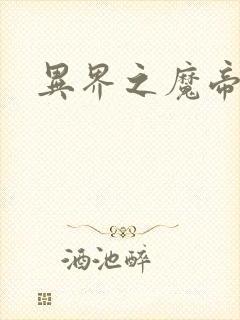 異界之魔帝
酒池醉